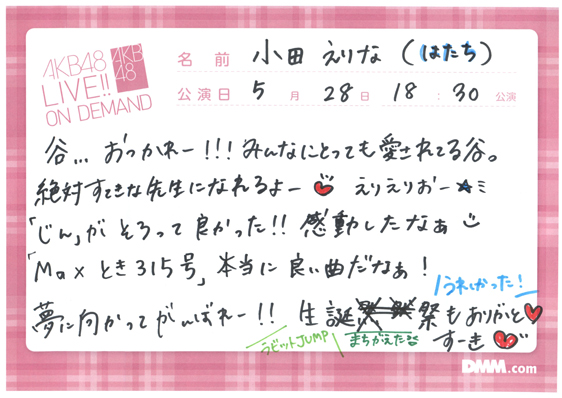 AKB48
LIVE!!
ON DEMAND
AKB
48
名前 小田 えりな (はたち)
公演日 5月28日 18:30 公演
谷… おっかれー!!! みんなにとっても愛されてる谷。
絶対すてきな先生になれるよー えりえりおー
「じん」が そろって 良かった!! 感動したなぁ
「Maxとき315号」本当に 良い曲だなぁ!
うれしかった!
夢に向かってがんばれー!! 生誕 祭もありがと
ラビットJUMP まちがえた
すーき
DMM.com